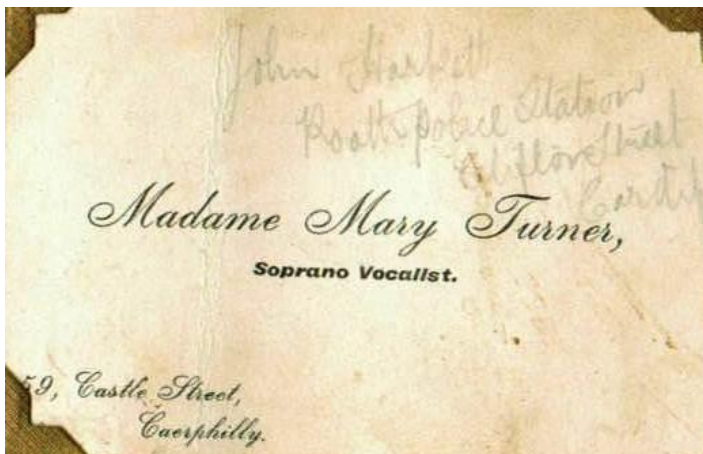 John
Roath Police Station
Clifton Street
Cardiff
Madame Mary Turner,
Soprano Vocalist.
59, Castle Street,
Caerphilly.